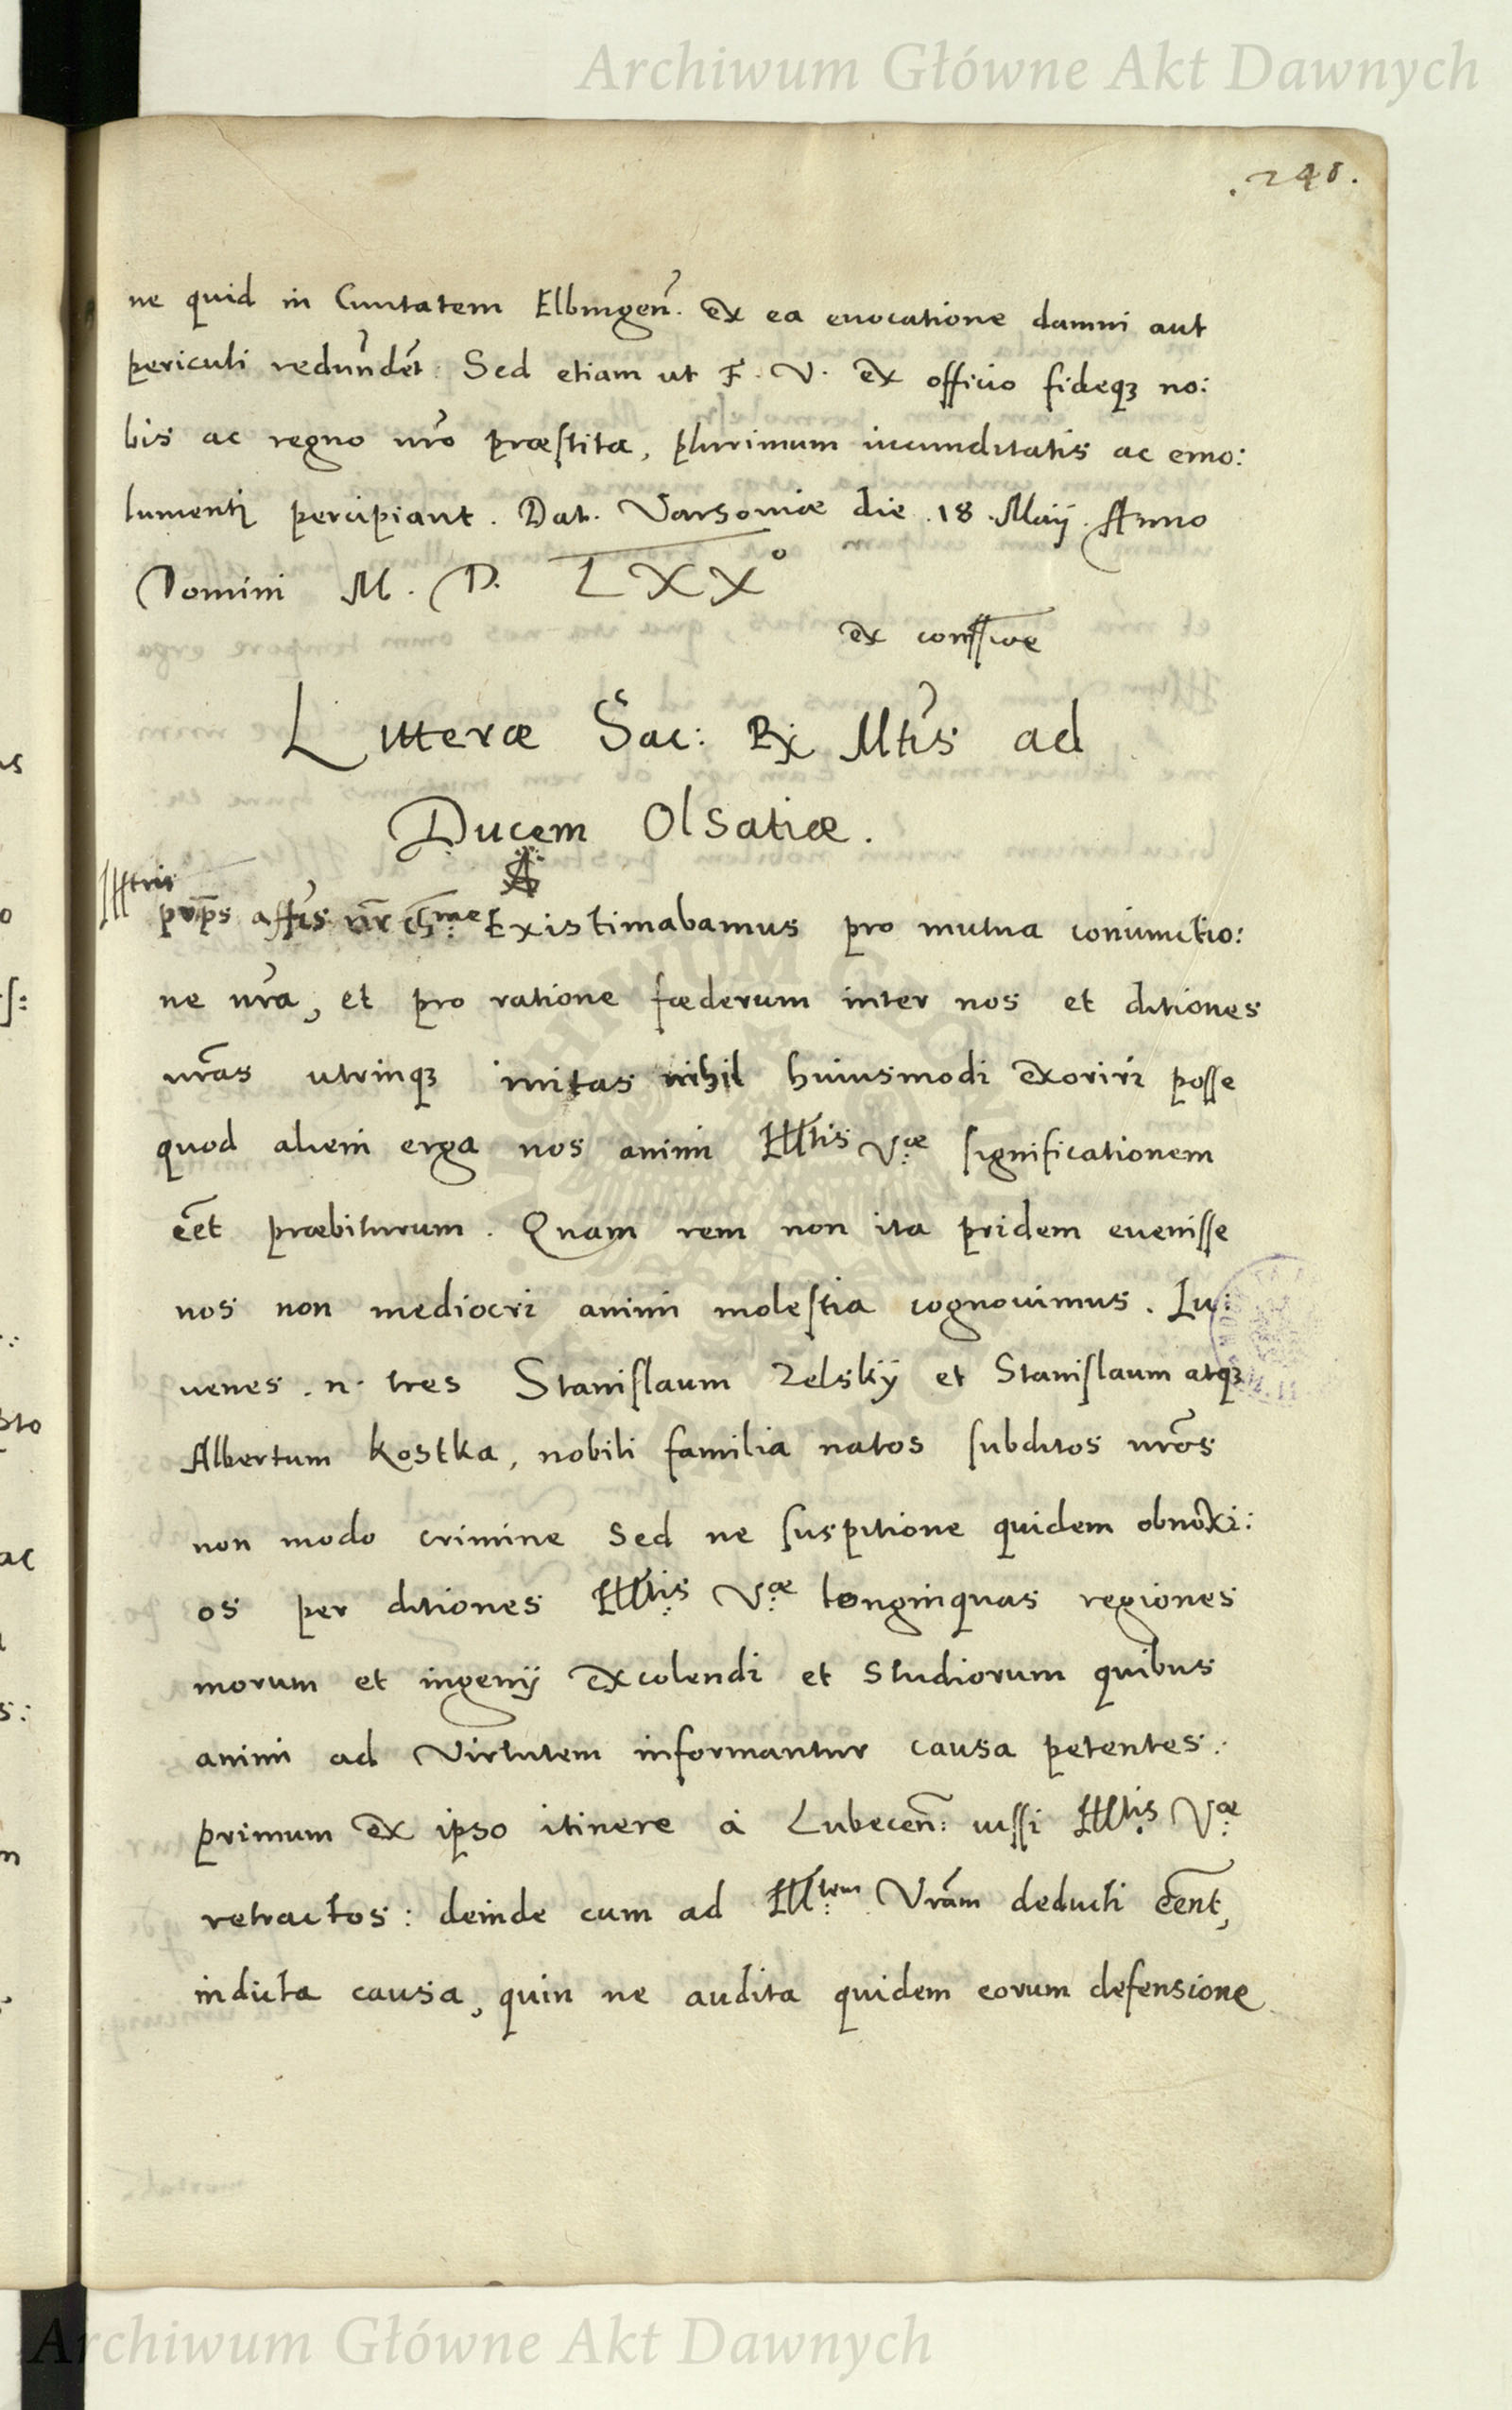 Archiwum Główne Akt Dawnych
.248.
ne quid in Ciuitatem Elbingeñ. ex ea euocatione damni aut
periculi redundẽt Sed etiam ut F. V. ex officio fideqꝫ no:
bis ac regno nr̃o præstita, plurimum iucunditatis ac emo:
lumenti percipiant. Dat. Varsoniæ die .18. Maij. Anno
Domini M. D. LXXº
ex comissione
Litteræ Sac: Rx Mtĩs ad
Ducem Olsatiæ.
Illtris
prñps affĩs nr̃ chme Existimabamus pro mutua coniunctio:
ne nr̃a, et pro ratione fœderum inter nos et ditiones
nr̃as utrinqꝫ initas nihil huiusmodi exoriri posse
quod alieni erga nos animi Illtis Væ significationem
eẽt præbiturum. Quam rem non ita pridem euenisse
nos non mediocri animi molestia cognouimus. Iu:
uenes .n. tres Stanislaum Zelskÿ et Stanislaum atqꝫ
Albertum Kostka, nobili familia natos subditos nr̃os
non modo crimine sed ne suspitione quidem obnoxi:
os per ditiones Illtis Væ longinquas regiones
morum et ingenij excolendi et studiorum quibus
animi ad virtutem informantur causa petentes:
primum ex ipso itinere à Lubeceñ: iussi Illtis Væ
retractos: deinde cum ad Illtem Vr̃am deducti eẽnt,
indicta causa, quin ne audita quidem eorum defensione
Archiwum Główne Akt Dawnych